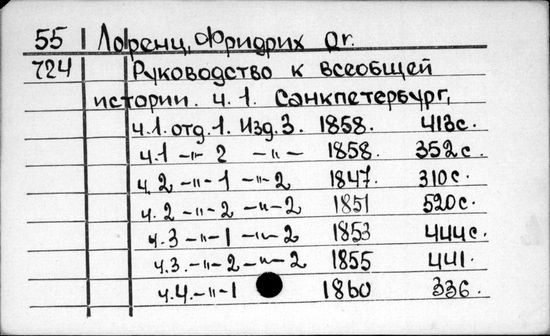 55 Лоренц, Фридрих Or.
724 Руководство к всеобщей
истории. ч. 1. Санкпетербург,
ч.1. отд. 1. Изд. 3. 1858. 413с.
ч.1 -"- 2 -"- 1858. 352с.
ч.2 -"- 1 -"- 2 1847. 310с.
ч.2 -"- 2 -"- 2 1851 520с.
ч.3 -"- 1 -"- 2 1853 444с.
ч.3. -"- 2 -"- 2 1855 441.
ч.4. -"- 1 1860 336.